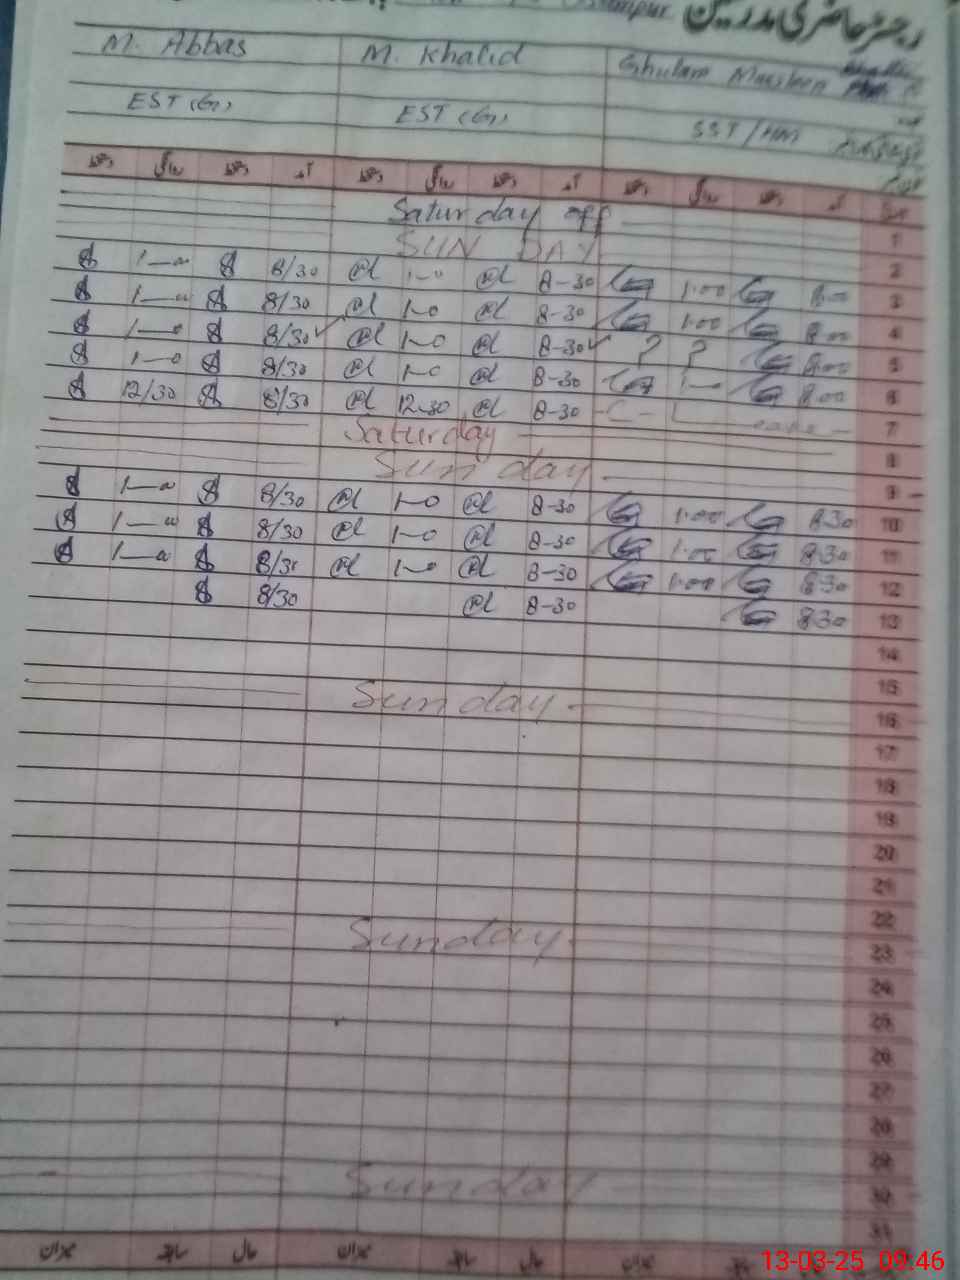 رجسٹر حاضری مدرسین
M. Abbas M. Khalid Ghulam
EST (G) EST (G) SST / HM
دستخط روانگی دستخط آمد دستخط روانگی دستخط آمد دستخط روانگی دستخط آمد
Saturday off 1
SUN DAY 2
1-00 8/30 1-0 8-30 1.00 8.00 3
1-00 8/30 1-0 8-30 1.00 8.00 4
1-0 8/30 ✓ 1-0 8-30 ✓ ? ? 8.00 5
1-0 8/30 1-0 8-30 1-0 8.00 6
12/30 8/30 12-30 8-30 C-L 7
Saturday 8
Sunday 9
1-0 8/30 1-0 8-30 1.00 8.30 10
1-0 8/30 1-0 8-30 1.00 8.30 11
1-0 8/30 1-0 8-30 1.00 8.30 12
8/30 8-30 8.30 13
14
15
Sunday 16
17
18
19
20
21
22
Sunday 23
24
25
26
27
28
29
Sunday 30
31
میزان سابقہ حال میزان سابقہ حال میزان
13-03-25 09:46